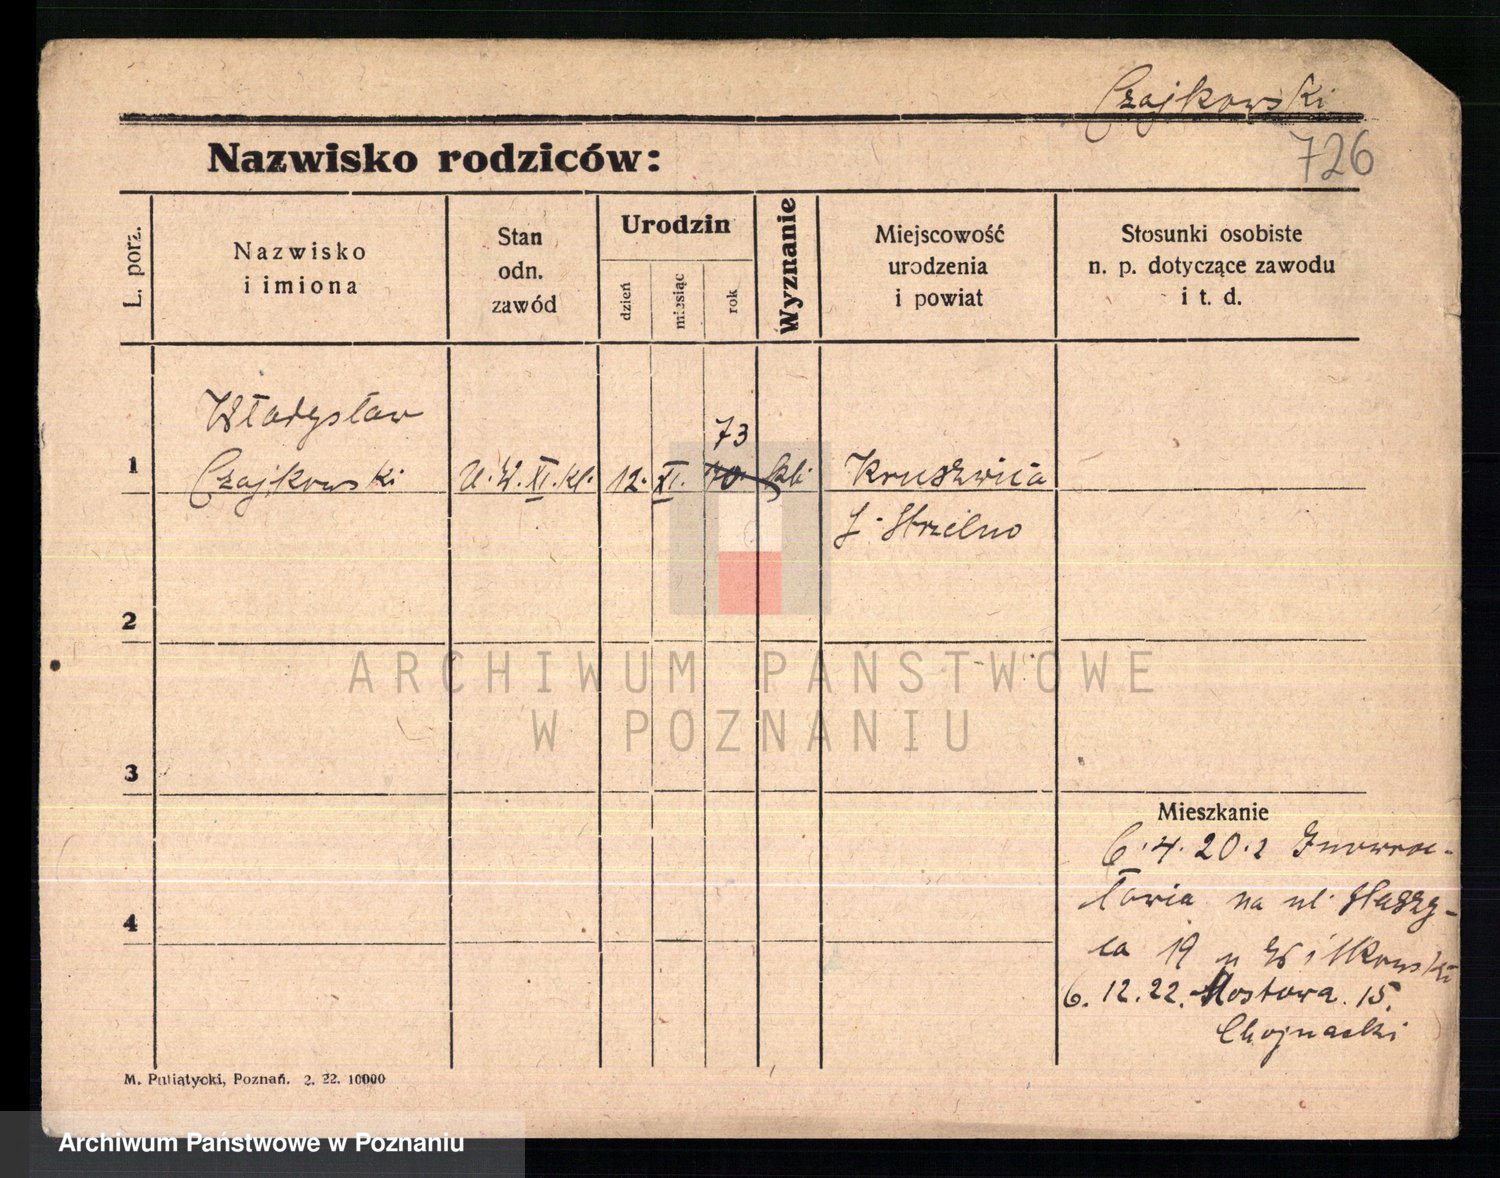 Czajkowski
726
Nazwisko rodziców:
L. porz.
Nazwisko
i imiona
Stan
odn.
zawód
Urodzin
dzień
miesiąc
rok
Wyznanie
Miejscowość
urodzenia
i powiat
Stosunki osobiste
n. p. dotyczące zawodu
i t. d.
Władysław
73
1
Czajkowski
XI. kl.
12.
XI.
70.
Kruszwica
Strzelno
2
ARCHIWUM PAŃSTWOWE
W POZNANIU
3
Mieszkanie
6.4.20. z Inowroc-
ławia na ul.
4
19 u Witkowski
6.12.22. Mostowa. 15.
Chojnacki
M. Putiatycki, Poznań. 2. 22. 10000
Archiwum Państwowe w Poznaniu